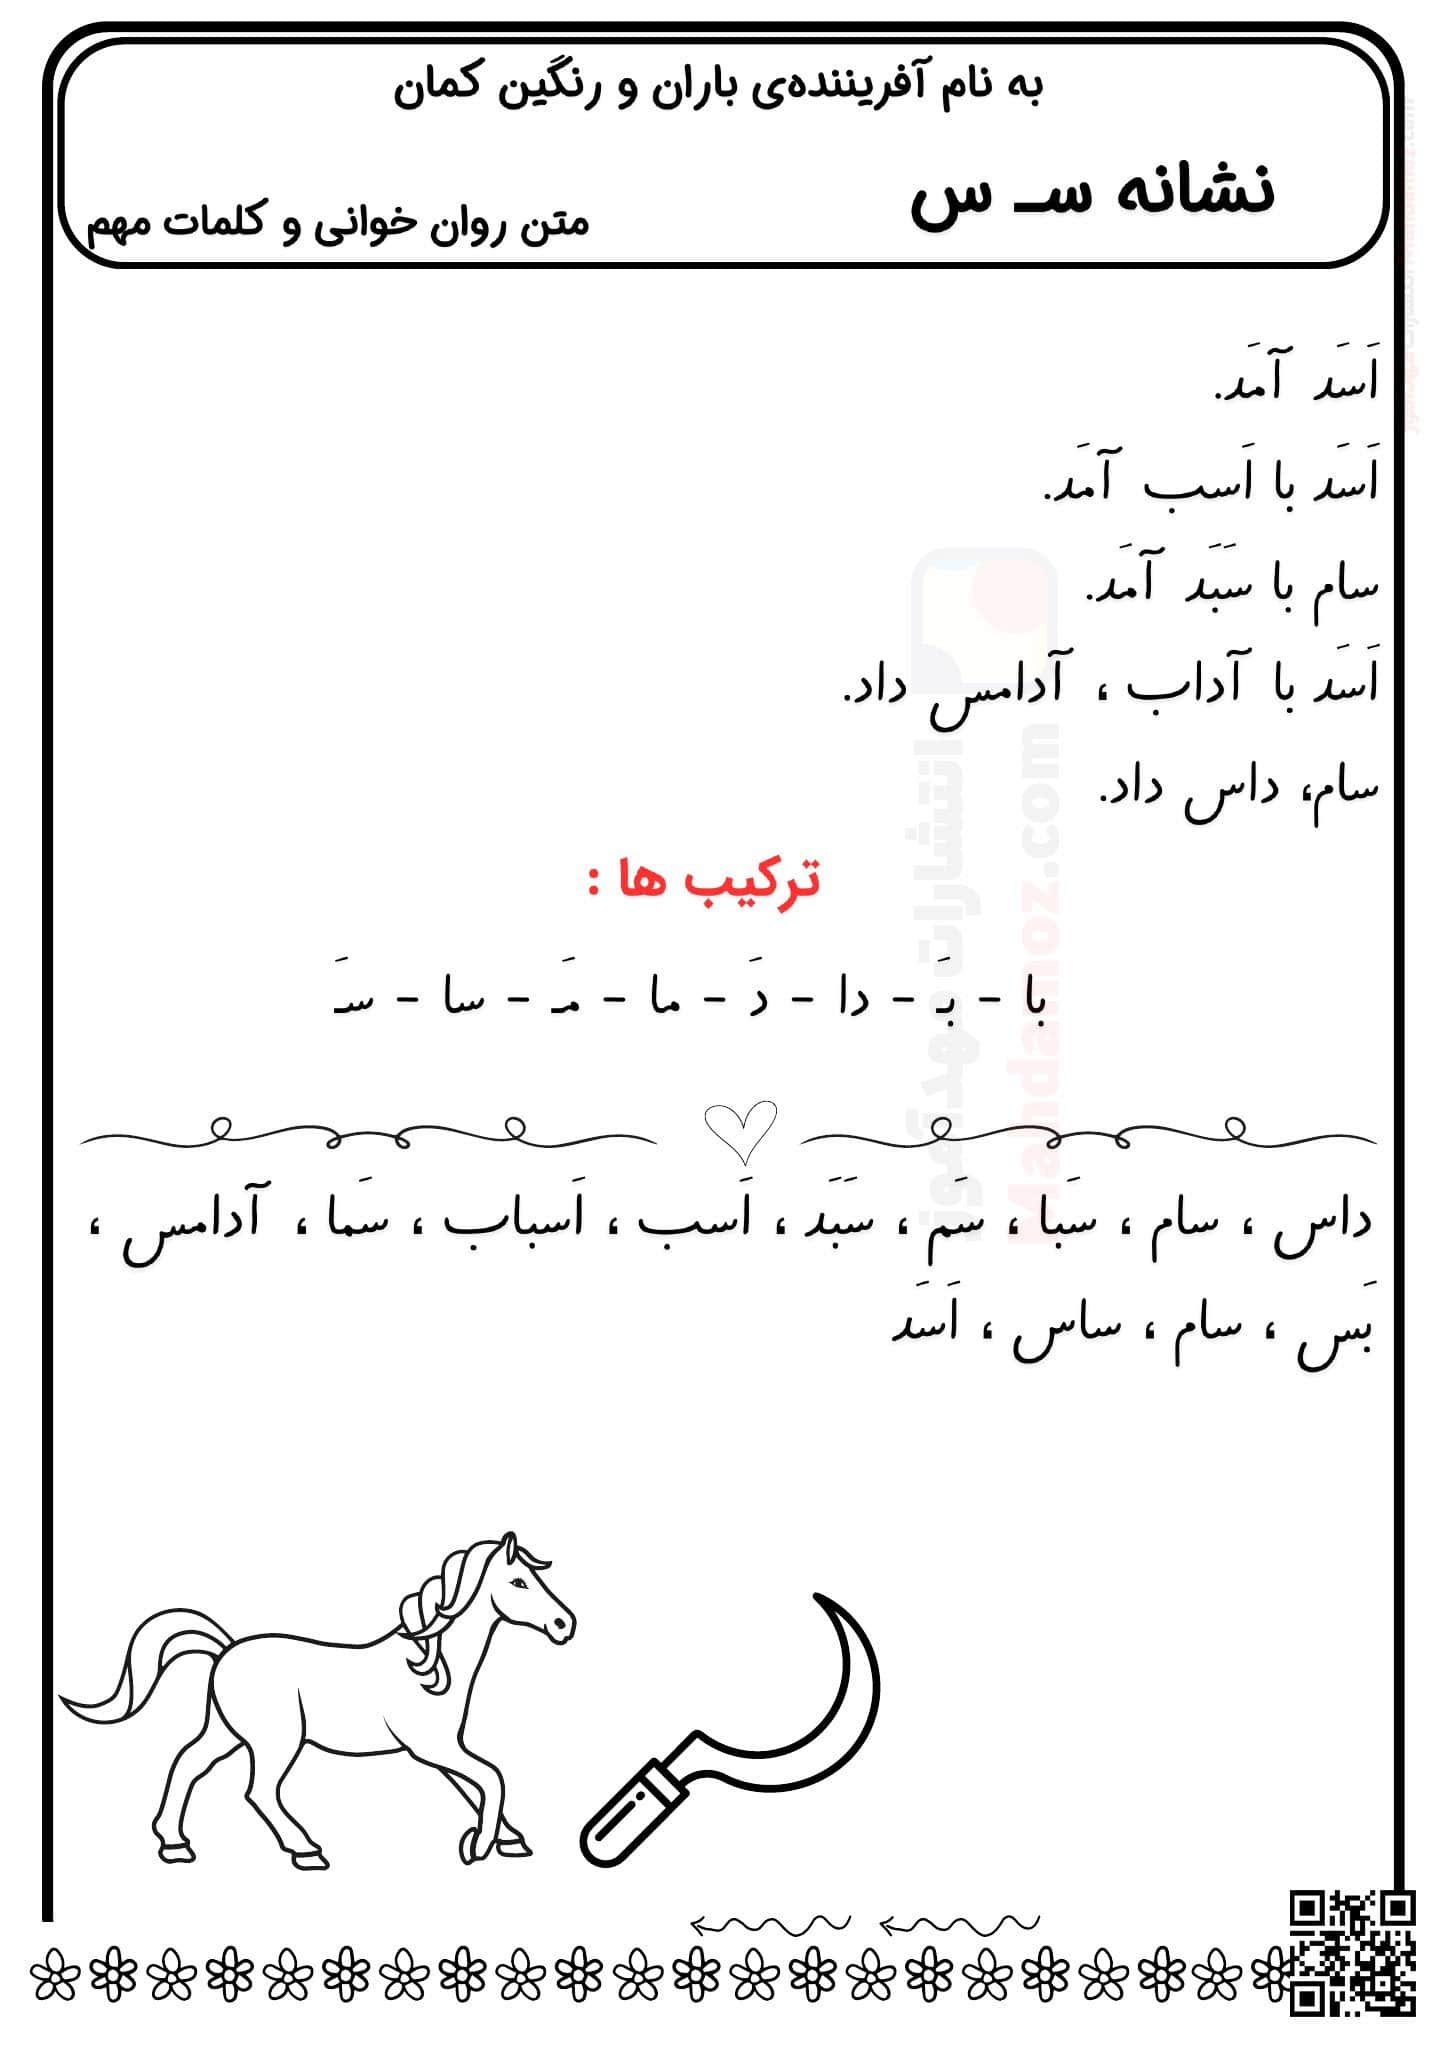 به نام آفریننده‌ی باران و رنگین کمان
نشانه سـ س
متن روان خوانی و کلمات مهم
اَسَد آمَد.
اَسَد با اَسب آمَد.
سام با سَبَد آمَد.
اَسَد با آداب ، آدامس داد.
سام، داس داد.
ترکیب ها :
با - بَـ - دا - دَ - ما - مَـ - سا - سَـ
داس ، سام ، سَبا ، سَم ، سَبَد ، اَسب ، اَسباب ، سَما ، آدامس ،
بَس ، سام ، ساس ، اَسَد
انتشارات مهدآموز
Mahdamoz.com